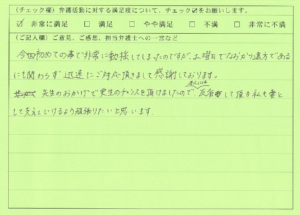 (チェック欄) 弁護活動に対する満足度について、チェック☑をお願いします。
☑ 非常に満足 □ 満足 □ やや満足 □ 不満 □ 非常に不満
(ご記入欄) ご意見、ご感想、担当弁護士への一言など
今回初めての事で非常に動揺してしまったのですが、土曜日でなおかつ遠方である
にも関わらず 迅速にご対応頂きまして感謝しております。
先生のおかげで更生のチャンスを頂けましたので、反省して後予私も妻と
して支えていけるよう頑張りたいと思います。